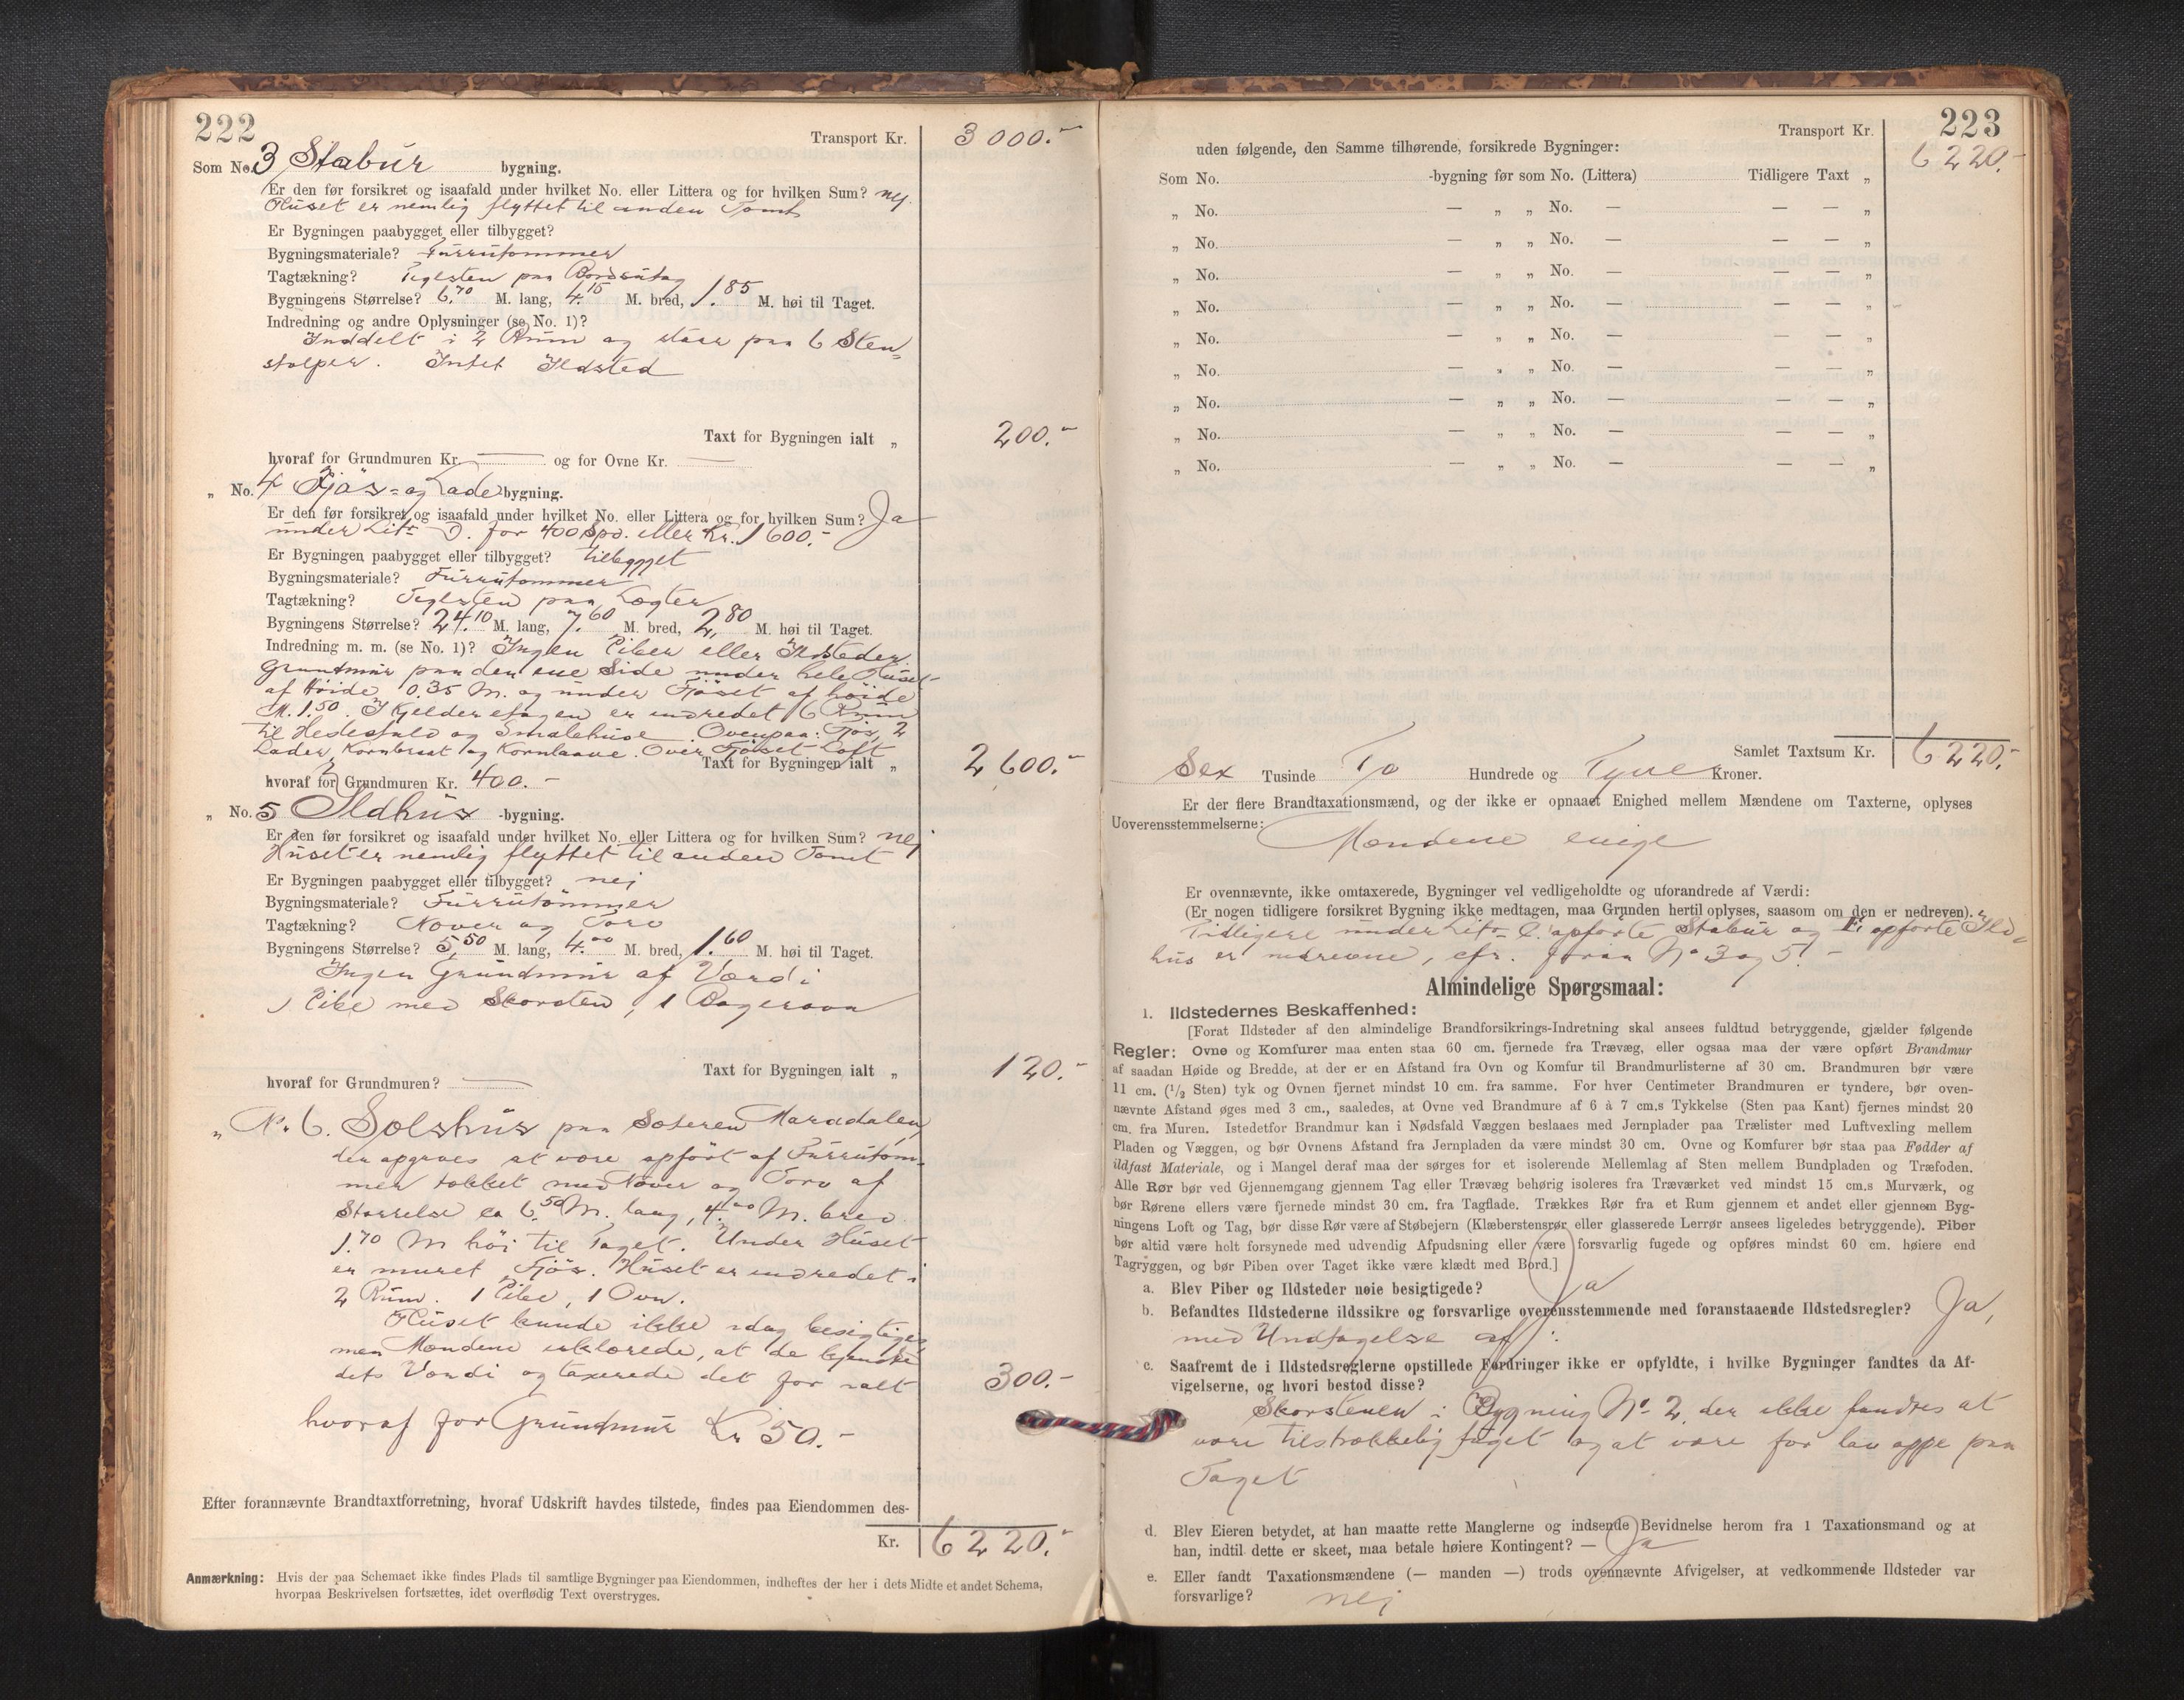 222
Transport Kr. 3000.-
Som No. 3 Stabur bygning.
Er den før forsikret og isaafald under hvilket No. eller Littera og for hvilken Sum? nej.
Huset er nemlig flyttet til anden Tomt
Er Bygningen paabygget eller tilbygget?
Bygningsmateriale? Furrutømmer
Tagtækning? Teglsten paa Bordsutag
Bygningens Størrelse? 6.70 M. lang, 4.15 M. bred, 1.85 M. høi til Taget.
Indredning og andre Oplysninger (se No. 1)?
Inddelt i 2 Rum og staar paa 6 Sten=
stolper. Intet Ildsted
Taxt for Bygningen ialt „ 200.-
hvoraf for Grundmuren Kr. — og for Ovne Kr. —
„ No. 4 Fjös= og Lade bygning.
Er den før forsikret og isaafald under hvilket No. eller Littera og for hvilken Sum? Ja
under Litr D. for 400 Spd. eller Kr. 1600.-
Er Bygningen paabygget eller tilbygget? tilbygget
Bygningsmateriale? Furrutømmer
Tagtækning? Teglsten paa Lægter
Bygningens Størrelse? 24.10 M. lang, 7.60 M. bred, 2.80 M. høi til Taget.
Indredning m. m. (se No. 1)? Ingen Piber eller Ildsteder.
Grundmur paa den ene Side under hele Huset
af Höide 0.35 M. og under Fjöset af höide
M. 1.50. I Kjelderetagen er indredet 6 Rum
til Hestestald og Smalehuse. Ovenpaa: Fjös, 2
Lader, Kornbraat og Kornlaave. Over Fjöset Loft
Taxt for Bygningen ialt „ 2600.-
hvoraf for Grundmuren Kr. 400.-
„ No. 5 Ildhus -bygning.
Er den før forsikret og isaafald under hvilket No. eller Littera og for hvilken Sum? nej
Huset er nemlig flyttet til anden Tomt
Er Bygningen paabygget eller tilbygget? nej
Bygningsmateriale? Furrutömmer
Tagtækning? Næver og Torv
Bygningens Størrelse? 5.50 M. lang, 4.00 M. bred, 1.60 M. høi til Taget.
Ingen Grundmur af Værdi
1 Pibe med Skorsten, 1 Bagerovn
Taxt for Bygningen ialt „ 120.-
hvoraf for Grundmuren? —
„ No. 6. Selshus paa Sæteren Maradalen,
der opgives at være opfört af Furrutöm=
mer tækket med Næver og Torv af
Störrelse ca 6.50 M. lang, 4.00 M. bred
1.70 M høi til Taget. Under Huset
er muret Fjös. Huset er indredet i
2 Rum. 1 Pibe, 1 Ovn.
Huset kunde ikke idag besigtiges
men Mændene erklærede, at de kjendte
dets Værdi og taxerede det for ialt 300.-
hvoraf for Grundmur Kr 50.-
Efter forannævnte Brandtaxtforretning, hvoraf Udskrift havdes tilstede, findes paa Eiendommen des-
Kr. 6220.-
Anmærkning: Hvis der paa Schemaet ikke findes Plads til samtlige Bygninger paa Eiendommen, indheftes der her i dets Midte et andet Schema,
hvorpaa Beskrivelsen fortsættes, idet overflødig Text overstryges.
223
Transport Kr. 6220.-
uden følgende, den Samme tilhørende, forsikrede Bygninger:
Som No. -bygning før som No. (Littera) Tidligere Taxt „
„ No. — „ „ No. — — — „
„ No. — „ „ No. — — — „
„ No. — „ „ No. — — — „
„ No. — „ „ No. — — — „
„ No. — „ „ No. — — — „
„ No. — „ „ No. — — — „
„ No. — „ „ No. — — — „
„ No. — „ „ No. — — — „
„ No. — „ „ No. — — — „
Samlet Taxtsum Kr. 6220.-
Sex Tusinde To Hundrede og Tyve Kroner.
Er der flere Brandtaxationsmænd, og der ikke er opnaaet Enighed mellem Mændene om Taxterne, oplyses
Uoverensstemmelserne: Mændene enige
Er ovennævnte, ikke omtaxerede, Bygninger vel vedligeholdte og uforandrede af Værdi:
(Er nogen tidligere forsikret Bygning ikke medtagen, maa Grunden hertil oplyses, saasom om den er nedreven).
Tidligere under Litr C. opförte Stabur og E. opförte Ild=
hus er nedrevne, cfr. foran No 3 og 5. -
Almindelige Spørgsmaal:
1. Ildstedernes Beskaffenhed:
[Forat Ildsteder af den almindelige Brandforsikrings-Indretning skal ansees fuldtud betryggende, gjælder følgende
Regler: Ovne og Komfurer maa enten staa 60 cm. fjernede fra Trævæg, eller ogsaa maa der være opført Brandmur
af saadan Høide og Bredde, at der er en Afstand fra Ovn og Komfur til Brandmurlisterne af 30 cm. Brandmuren bør være
11 cm. (1/2 Sten) tyk og Ovnen fjernet mindst 10 cm. fra samme. For hver Centimeter Brandmuren er tyndere, bør oven-
nævnte Afstand øges med 3 cm., saaledes, at Ovne ved Brandmure af 6 à 7 cm.s Tykkelse (Sten paa Kant) fjernes mindst 20
cm. fra Muren. Istedetfor Brandmur kan i Nødsfald Væggen beslaaes med Jernplader paa Trælister med Luftvexling mellem
Pladen og Væggen, og bør Ovnens Afstand fra Jernpladen da være mindst 30 cm. Ovne og Komfurer bør staa paa Fødder af
ildfast Materiale, og i Mangel deraf maa der sørges for et isolerende Mellemlag af Sten mellem Bundpladen og Træfoden.
Alle Rør bør ved Gjennemgang gjennem Tag eller Trævæg behørig isoleres fra Træværket ved mindst 15 cm.s Murværk, og
bør Rørene ellers være fjernede mindst 30 cm. fra Tagflade. Trækkes Rør fra et Rum gjennem et andet eller gjennem Byg-
ningens Loft og Tag, bør disse Rør være af Støbejern (Klæberstensrør eller glasserede Lerrør ansees ligeledes betryggende). Piber
bør altid være helt forsynede med udvendig Afpudsning eller være forsvarlig fugede og opføres mindst 60 cm. høiere end
Tagryggen, og bør Piben over Taget ikke være klædt med Bord.]
a. Blev Piber og Ildsteder nøie besigtigede? Ja
b. Befandtes Ildstederne ildssikre og forsvarlige overensstemmende med foranstaaende Ildstedsregler? Ja,
med Undtagelse af :
c. Saafremt de i Ildstedsreglerne opstillede Fordringer ikke er opfyldte, i hvilke Bygninger fandtes da Af-
vigelserne, og hvori bestod disse?
Skorstenen i Bygning No 2, der ikke fandtes at
være tilstrækkelig fuget og at være for lav oppe paa
Taget
d. Blev Eieren betydet, at han maatte rette Manglerne og indsende Bevidnelse herom fra 1 Taxationsmand og at
han, indtil dette er skeet, maa betale høiere Kontingent? — Ja
e. Eller fandt Taxationsmændene (— manden —) trods ovennævnte Afvigelser, at vedkommende Ildsteder var
forsvarlige? nej